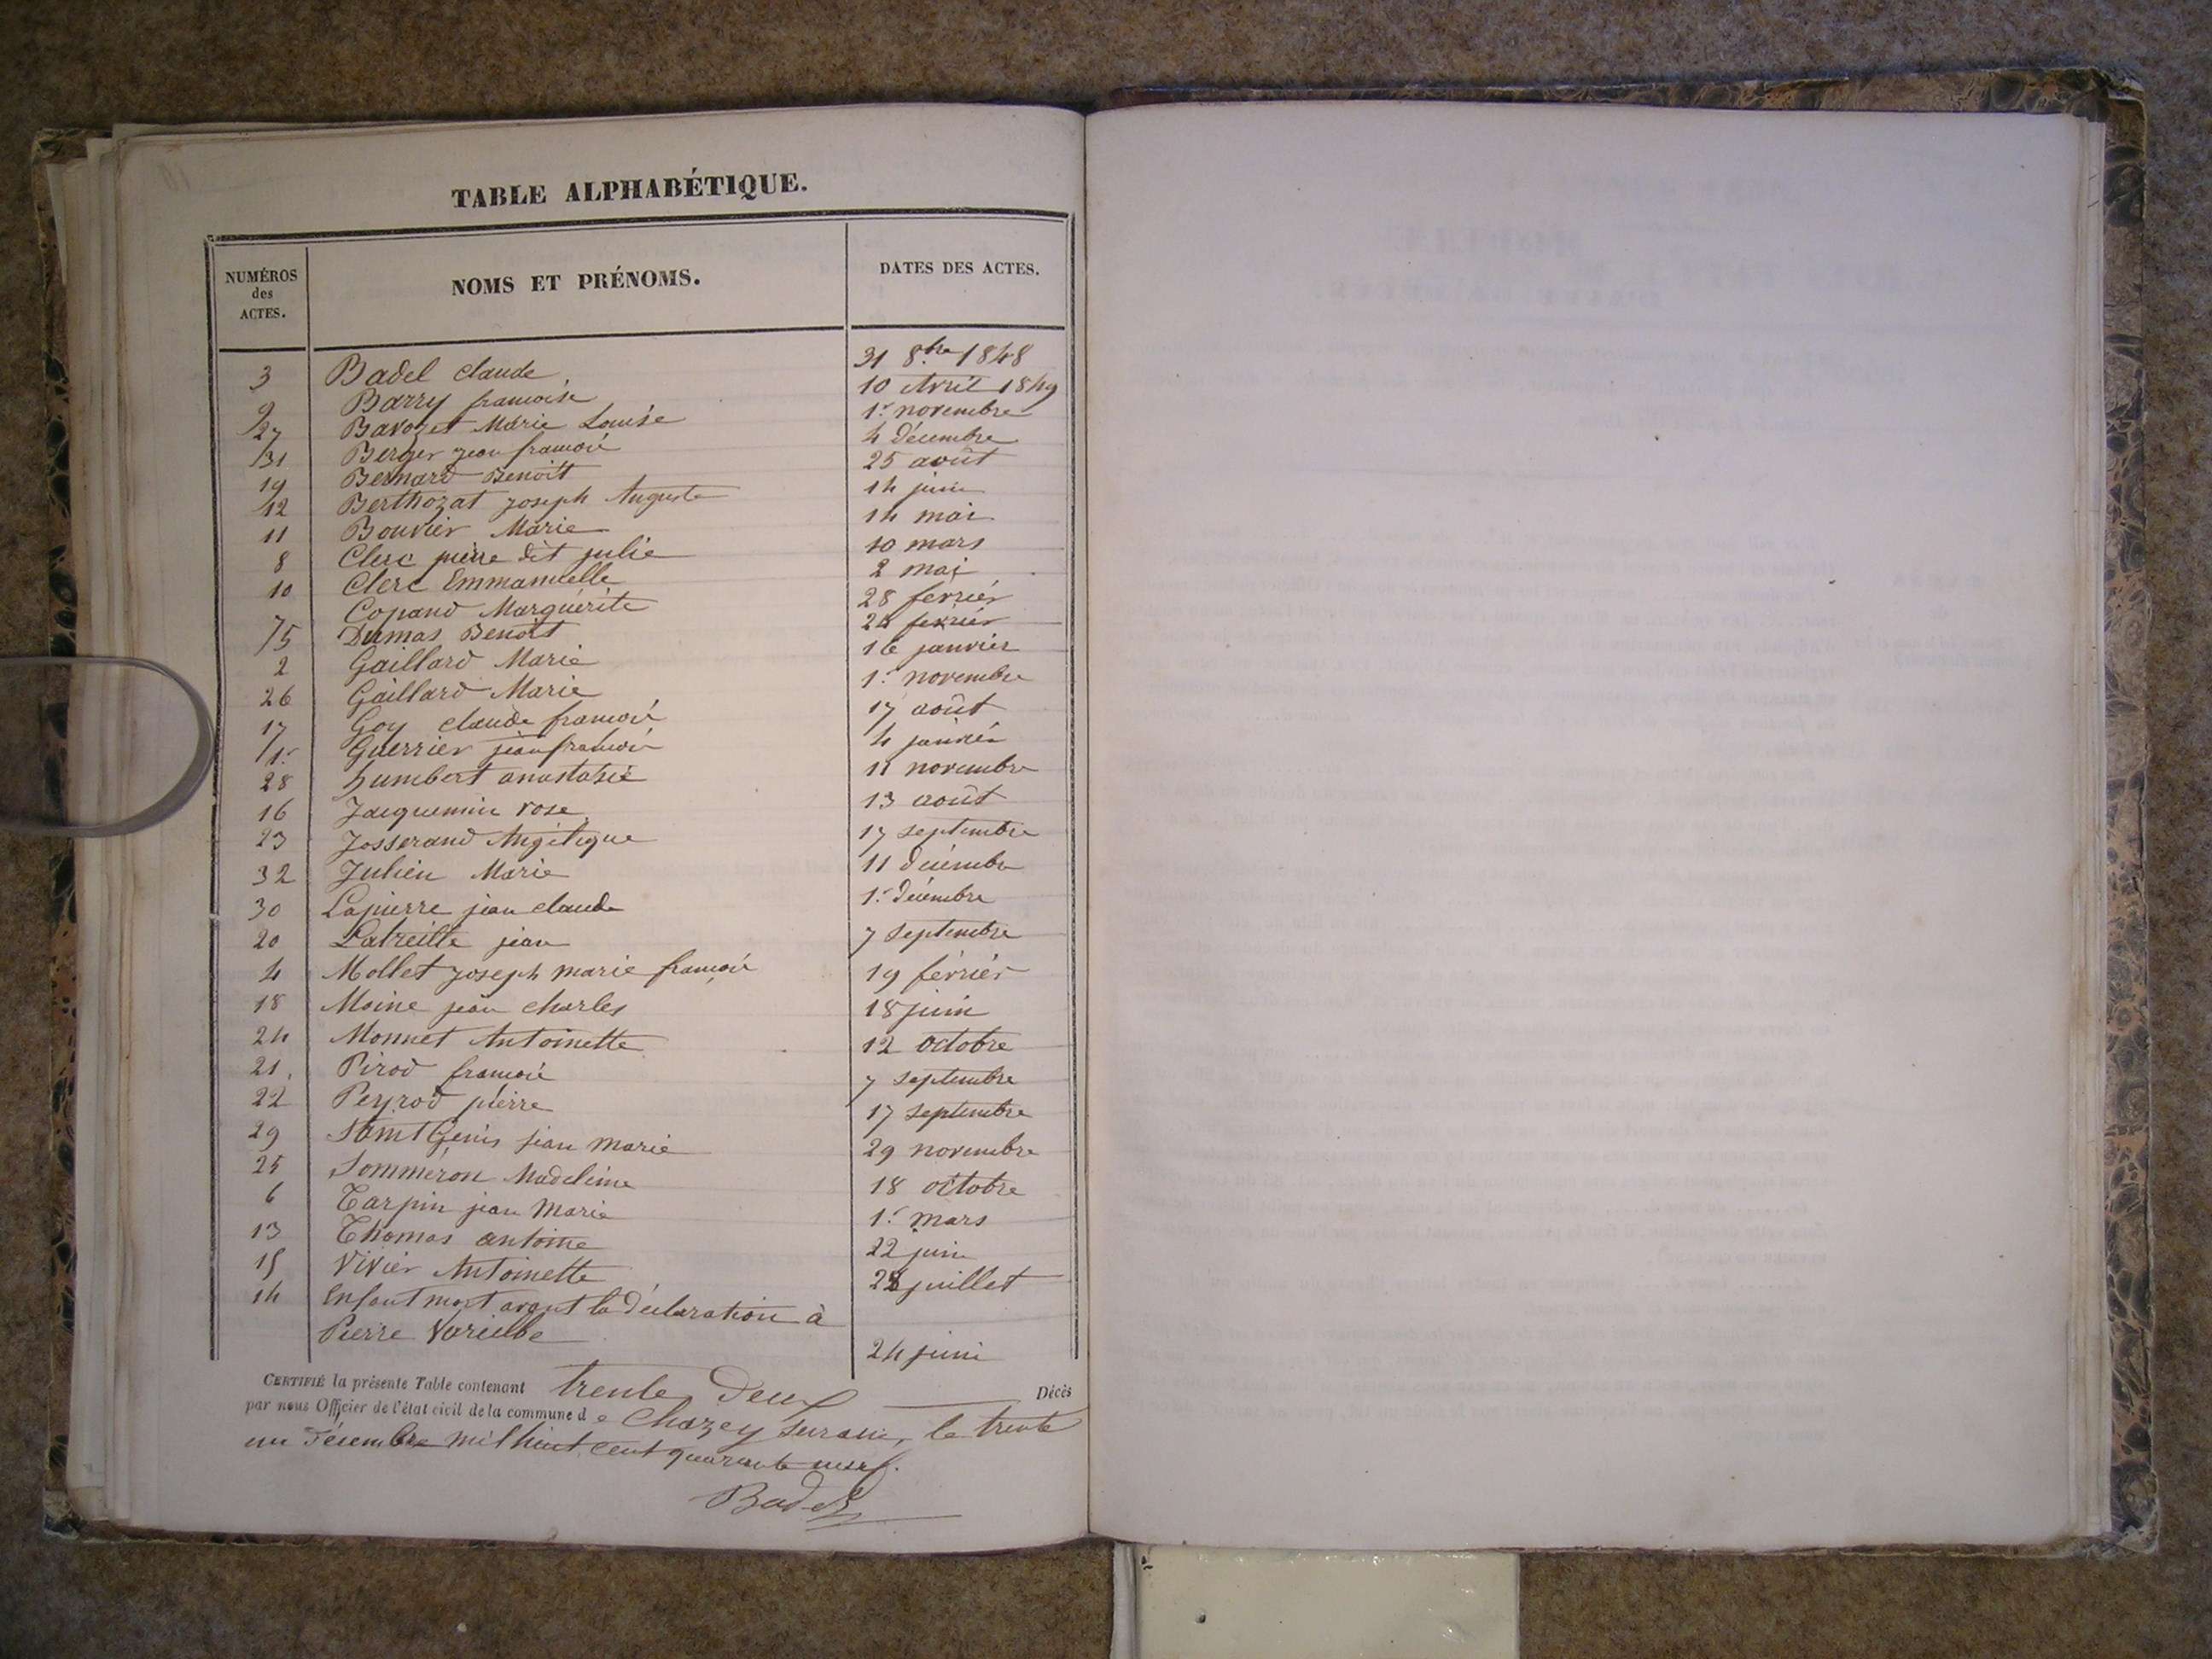 TABLE ALPHABÉTIQUE.
NUMÉROS des ACTES. NOMS ET PRÉNOMS. DATES DES ACTES.
3 Badel claude 31 8.bre 1848
9 Barry francoise 10 Avril 1849
27 Bavozet Marie Louise 1.r novembre
31 Berger jean francois 4 Décembre
19 Bernard Benoit 25 août
12 Berthozat joseph Auguste 14 juin
11 Bouvier Marie 14 mai
8 Clerc pierre dit julie 10 mars
10 Clerc Emmanuelle 2 mai
7 Copand Marguérite 28 fevriér
5 Dumas Benoit 24 fevriér
2 Gaillard Marie 16 janvier
26 Gaillard Marie 1.r novembre
17 Goy claude francois 17 août
1.r Guerrier jean francois 4 janviér
28 humbert anastasie 11 novembre
16 Jacquemin rose 13 août
23 Josserand Angélique 17 septembre
32 Julien Marie 11 décembre
30 Lapierre jean claude 1.r décembre
20 Latreille jean 7 septembre
4 Mollet joseph marie françois 19 février
18 Moine jean charles 18 juin
24 Monnet Antoinette 12 octobre
21. Pirod francois 7 septembre
22 Peyrod pierre 17 septembre
29 Saint Genis jean marie 29 novembre
25 Sommeron Madeleine 18 octobre
6 Tarpin jean Marie 1.r mars
13 Thomas antoine 22 juin
15 Vivier Antoinette 28 juillet
14 Enfant mort avant la déclaration à
Pierre 24 juin
CERTIFIÉ la présente Table contenant trente Deux Décès
par nous Officier de l'état civil de la commune de Chazey suran, le trente
un Décembre mil huit cent quarante neuf.
Badel